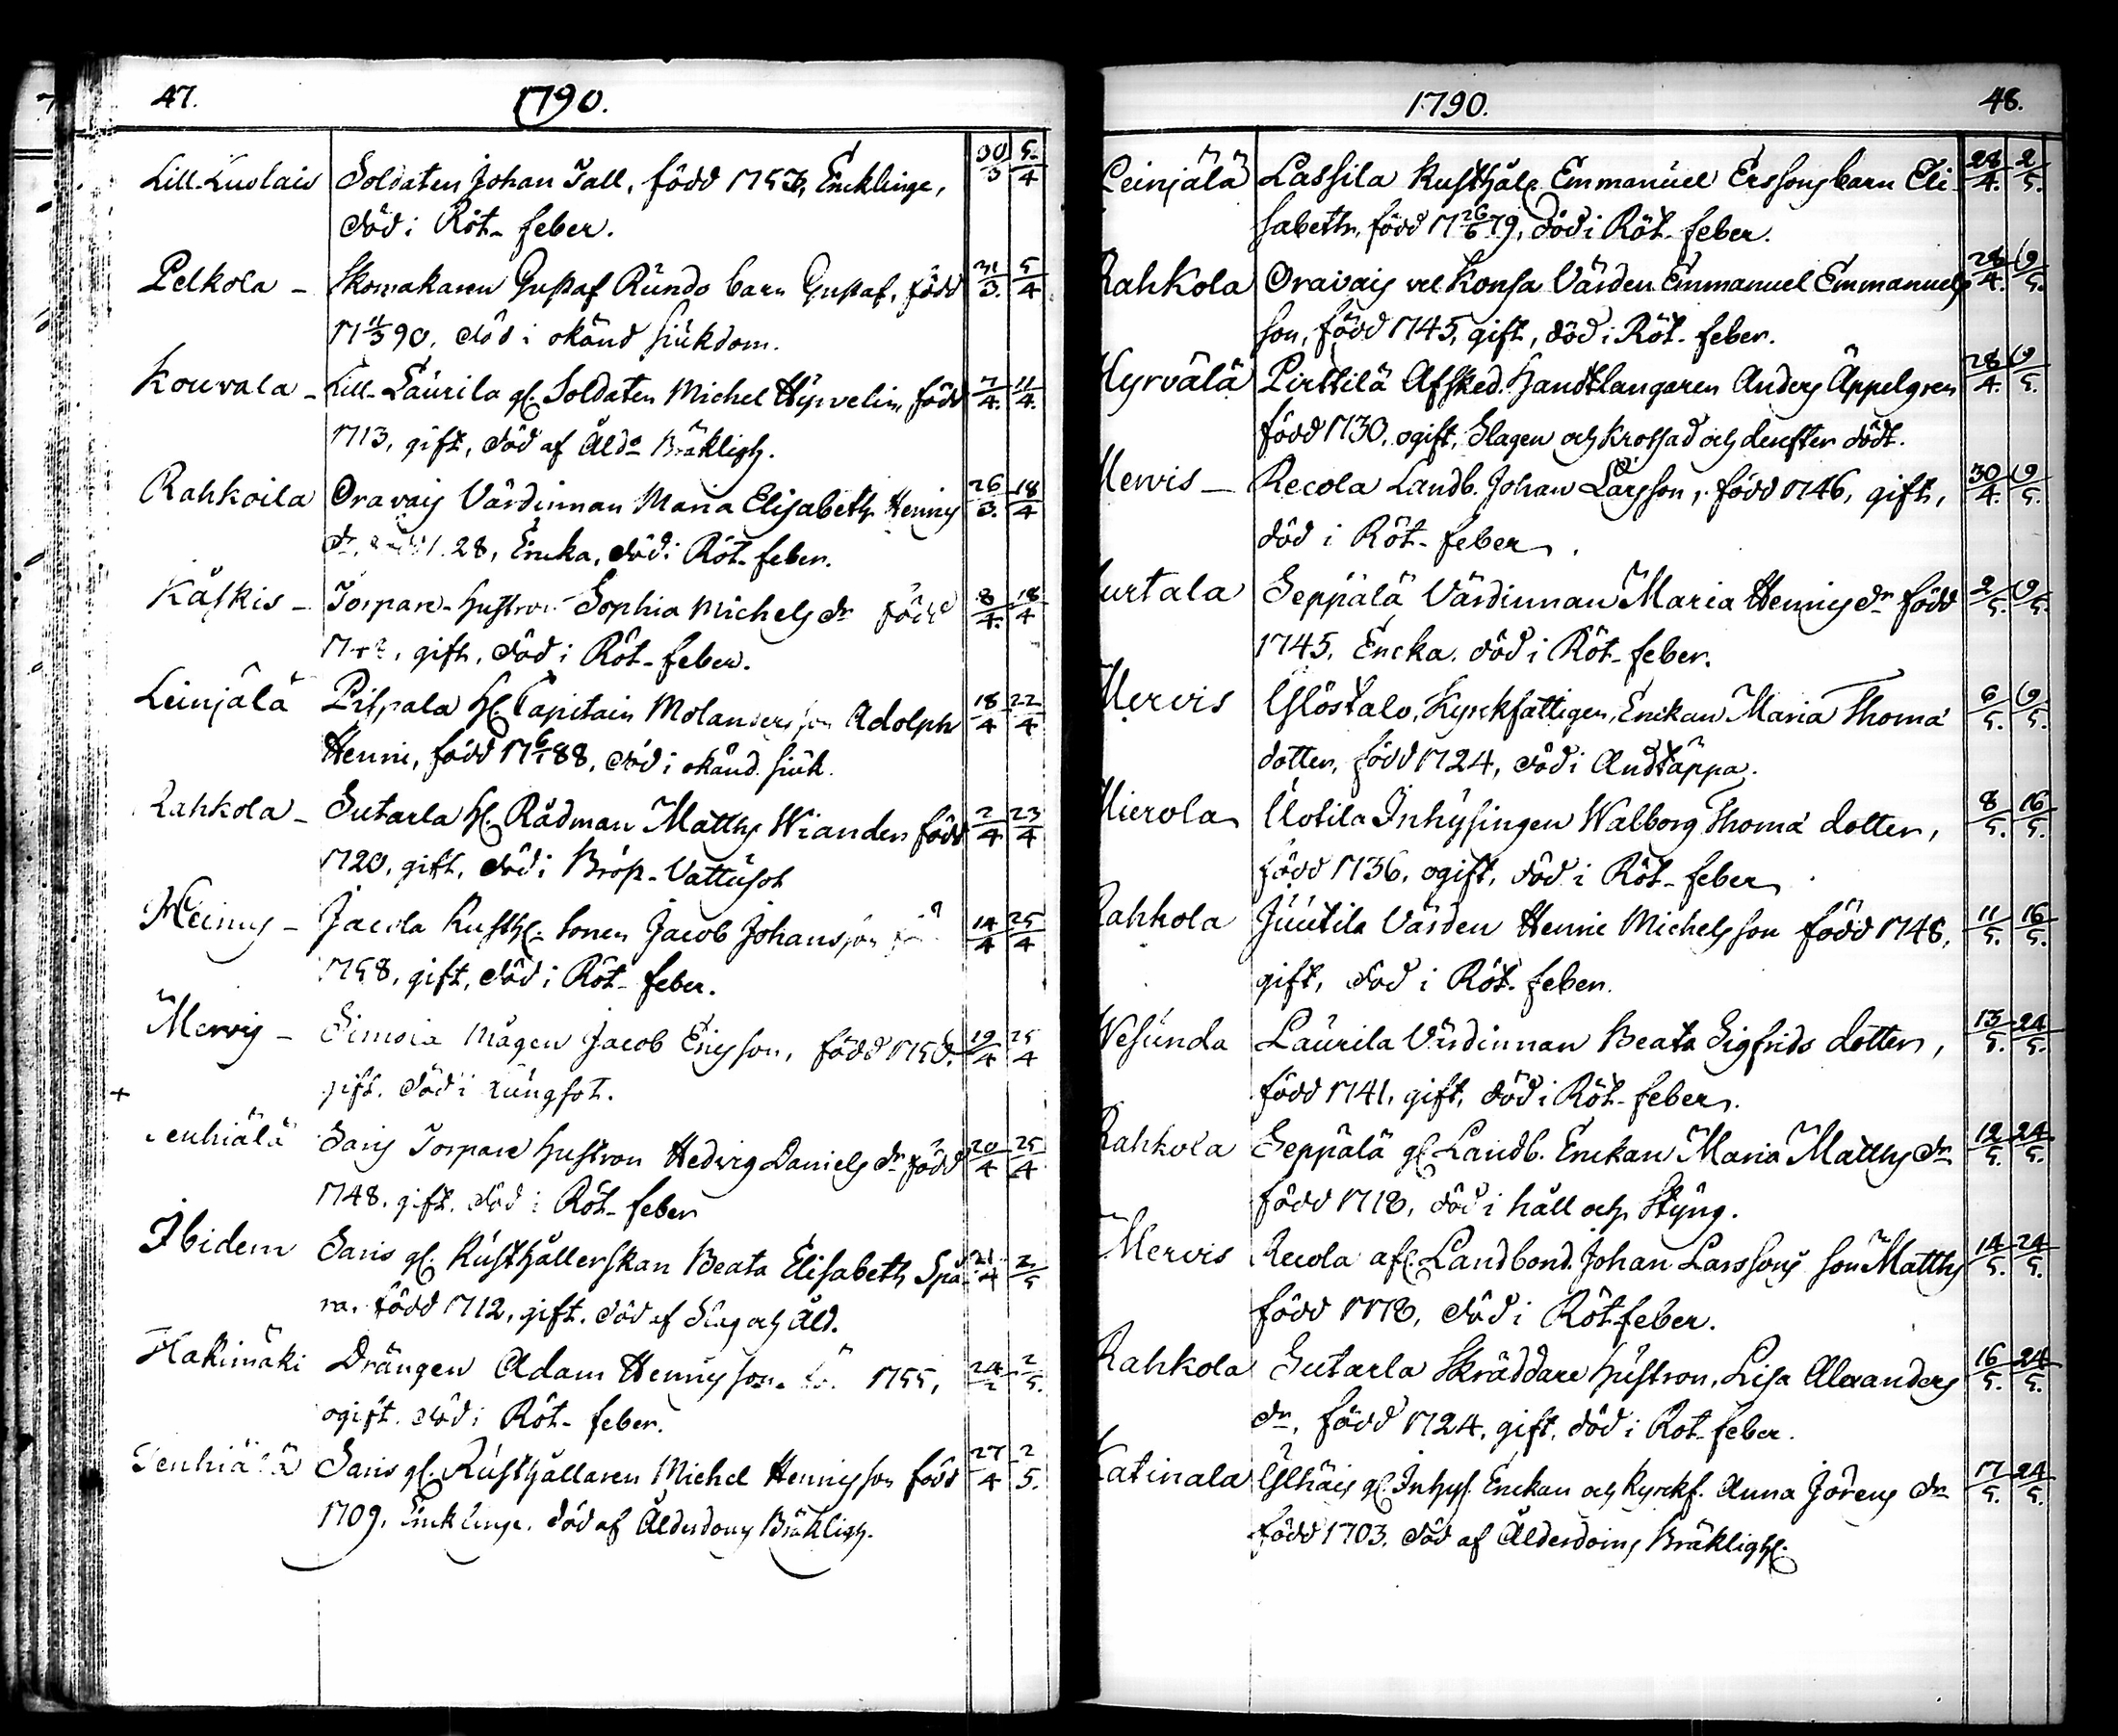 47. 1790.
Lill-Luolais Soldaten Johan Tall, född 1757, Encklinge, 30/3 5/4
död i Röt-feber.
Pelkola - Skomakaren Gustaf Rundo barn Gustaf, född 31/3. 5/4
17 11/3 90, död i okänd siukdom.
Kouvala - Lill-Laurila gl. Soldaten Michel Hyrvelin, född 7/4. 11/4.
1713, gift, död af Åldº Bräkligh.
Rahkoila Oravais Värdinnan Maria Elisabeth Henrics 26/3. 18/4
dr, 28, Encka, död i Röt-feber.
Kåskis - Torpare-hustrun Sophia Michels dr född 8/4. 18/4
gift, död i Röt-feber.
Leinjälä Pispala H. Capitain Molanders son Adolph 18/4 22/4
Henric, född 17 6/1 88, död i okänd. siuk.
Rahkola - Sutarla H. Rådman Matths Wianden född 2/4 23/4
1720, gift, död i Bröst-Vattusot
Heinus - Jacola Rusth. sonen Jacob Johansson 14/4 25/4
1758, gift, död i Röt-feber.
Mervis - Simola Mågen Jacob Ericsson, född 1750. 19/4 25/4
gift. död i Lungsot.
+
enhiälä Saris Torpare hustrun Hedvig Daniels dr född 20/4 25/4
1748. gift. död i Röt-feber
Ibidem Saris gl. Rusthållerskan Beata Elisabeth Spå- 21/4 2/5
ra, född 1712, gift. död af Slag och Åld.
Hakimäki Drängen Adam Henricsson 1755, 24/4 2/5.
ogift. död i Röt-feber.
Tenhiälä Saris gl. Rusthållaren Michel Henricsson född 27/4 2/5.
1709, Encklinge. död af Ålderdoms Bräkligh.
1790. 48.
Leinjälä Lassila Rusthål. Emmanuel Erssons barn Eli- 28/4. 2/5.
sabeth, född 17 26/6 79, död i Röt-feber.
Rahkola Oravais vel Konsa Värden Emmanuel Emmanuels 28/4. 9/5.
son, född 1745, gift, död i Röt-feber.
Hyrvälä Pirttilä Afsked. Handtlangaren Anders Äppelgren 28/4. 9/5.
född 1730, ogift, Slagen och krossad och derefter dödt.
Mervis - Recola Landb. Johan Larsson, född 1746, gift, 30/4. 9/5.
död i Röt-feber.
urtala Seppälä Värdinnan Maria Henrics dr född 2/5. 9/5.
1745, Encka. död i Röt-feber.
Mervis Ylöstalo, Kyrckfattigen, Enckan Maria Thomæ 6/5. 9/5.
dotter, född 1724, död i Andtäppa.
Mierola Uotila Inhysingen Walborg Thomæ dotter, 8/5. 16/5.
född 1736, ogift, död i Röt-feber
Rahkola Juutila Värden Henric Michelsson född 1748, 11/5. 16/5.
gift, död i Röt-feber.
Wesunda Laurila Värdinnan Beata Sigfrids dotter, 13/5. 24/5.
född 1741, gift, död i Röt-feber.
Rahkola Seppälä gl. Landb. Enckan Maria Matths dr 12/5. 24/5.
född 1718, död i håll och Styng.
Mervis Recola afl. Landbond. Johan Larssons son Matths 14/5. 24/5.
född 1778, död i Rötfeber.
Rahkola Sutarla Skräddare hustrun, Lisa Alexanders 16/5. 24/5.
dr, född 1724, gift, död i Röt-feber.
Katinala Ylhäis gl. Inhys. Enckan och Kyrckf. Anna Jörens dr 17/5. 24/5.
född 1703. död af Ålderdoms Bräkligh.